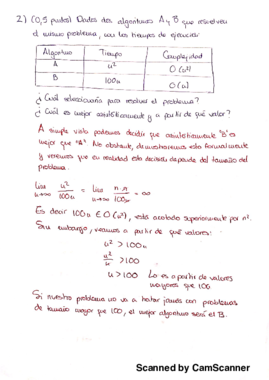 2) (0,5 puntos) Dados dos algoritmos A y B que resuelven
el mismo problema, con los tiempos de ejecución:
Algoritmo Tiempo Complejidad
A n² O(n²)
B 100n O(n)
¿Cuál seleccionaría para resolver el problema?
¿Cuál es mejor asintóticamente y a partir de qué valor?
A simple vista podemos decidir que asintóticamente "B" es
mejor que "A". No obstante, demostraremos esto formalmente
y veremos que en realidad esta decisión depende del tamaño del
problema.
lim n→∞ n²/100n = lim n→∞ n·n/100n = ∞
Es decir 100n ∈ O(n²), está acotado superiormente por n².
Sin embargo, veamos a partir de qué valores:
n² > 100n
n²/n > 100
n > 100 Lo es a partir de valores
mayores que 100
Si nuestro problema no va a tratar jamás con problemas
de tamaño mayor que 100, el mejor algoritmo será el B.
Scanned by CamScanner